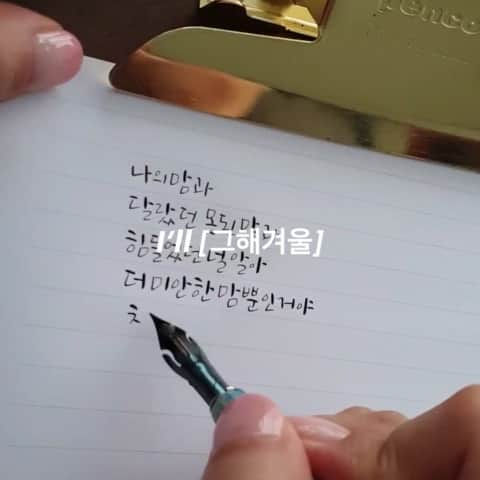 penco
나의맘과
달랐던 못된 말과
I'll [그해겨울]
힘들었던 널 알아
더 미안한 맘뿐인거야
ㅊ